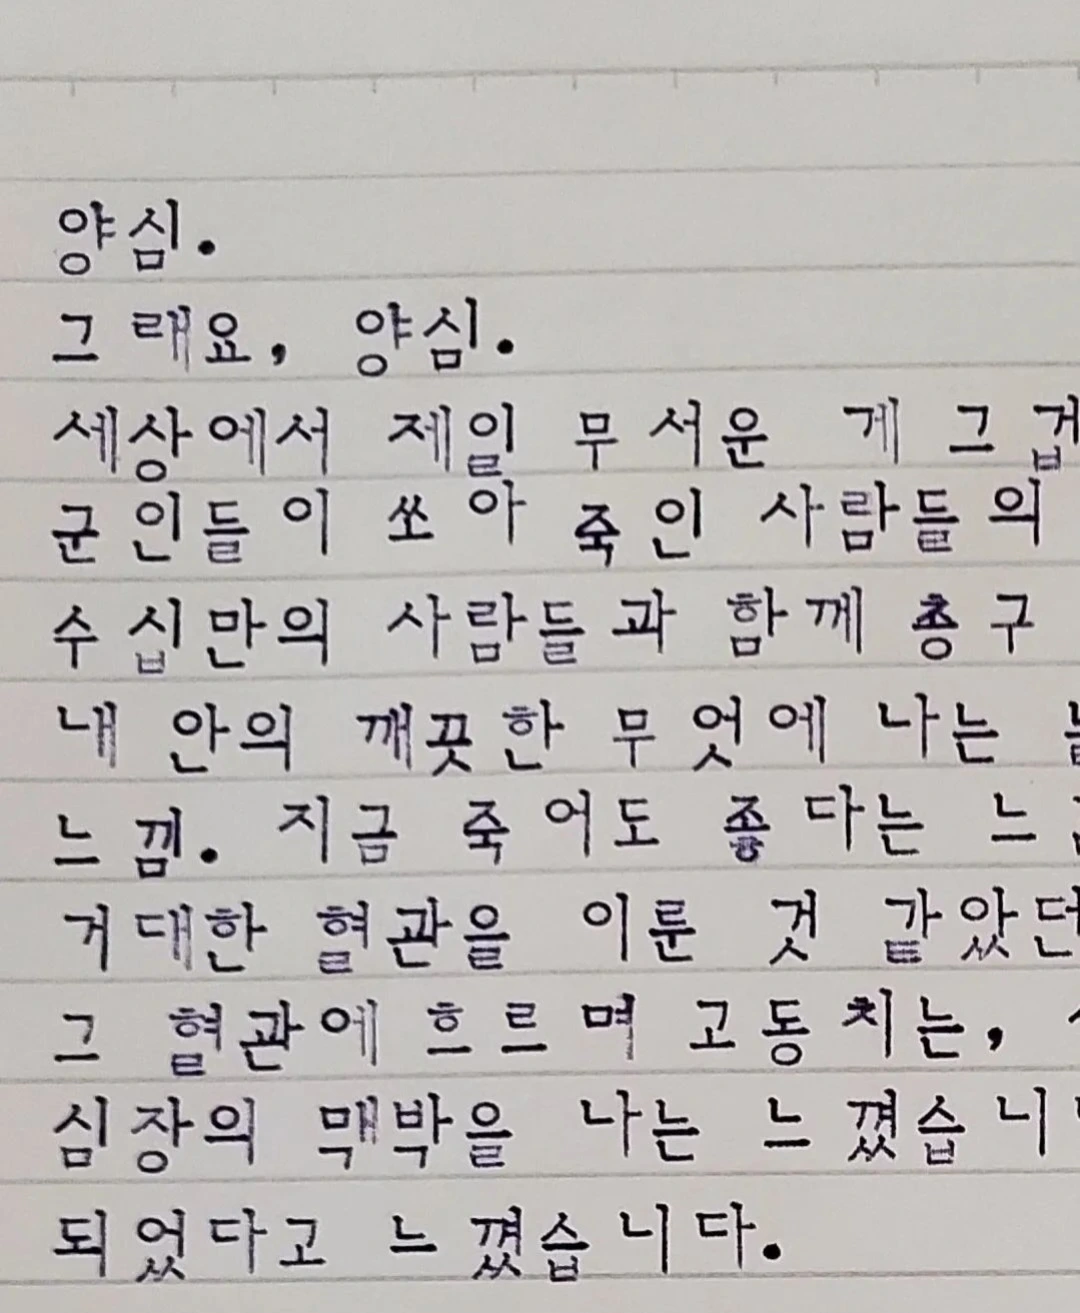 양심.
그래요, 양심.
세상에서 제일 무서운 게 그겁
군인들이 쏘아 죽인 사람들의
수십만의 사람들과 함께 총구
내 안의 깨끗한 무엇에 나는
느낌. 지금 죽어도 좋다는
거대한 혈관을 이룬 것 같았던
그 혈관에 흐르며 고동치는,
심장의 맥박을 나는 느꼈습니
되었다고 느꼈습니다.